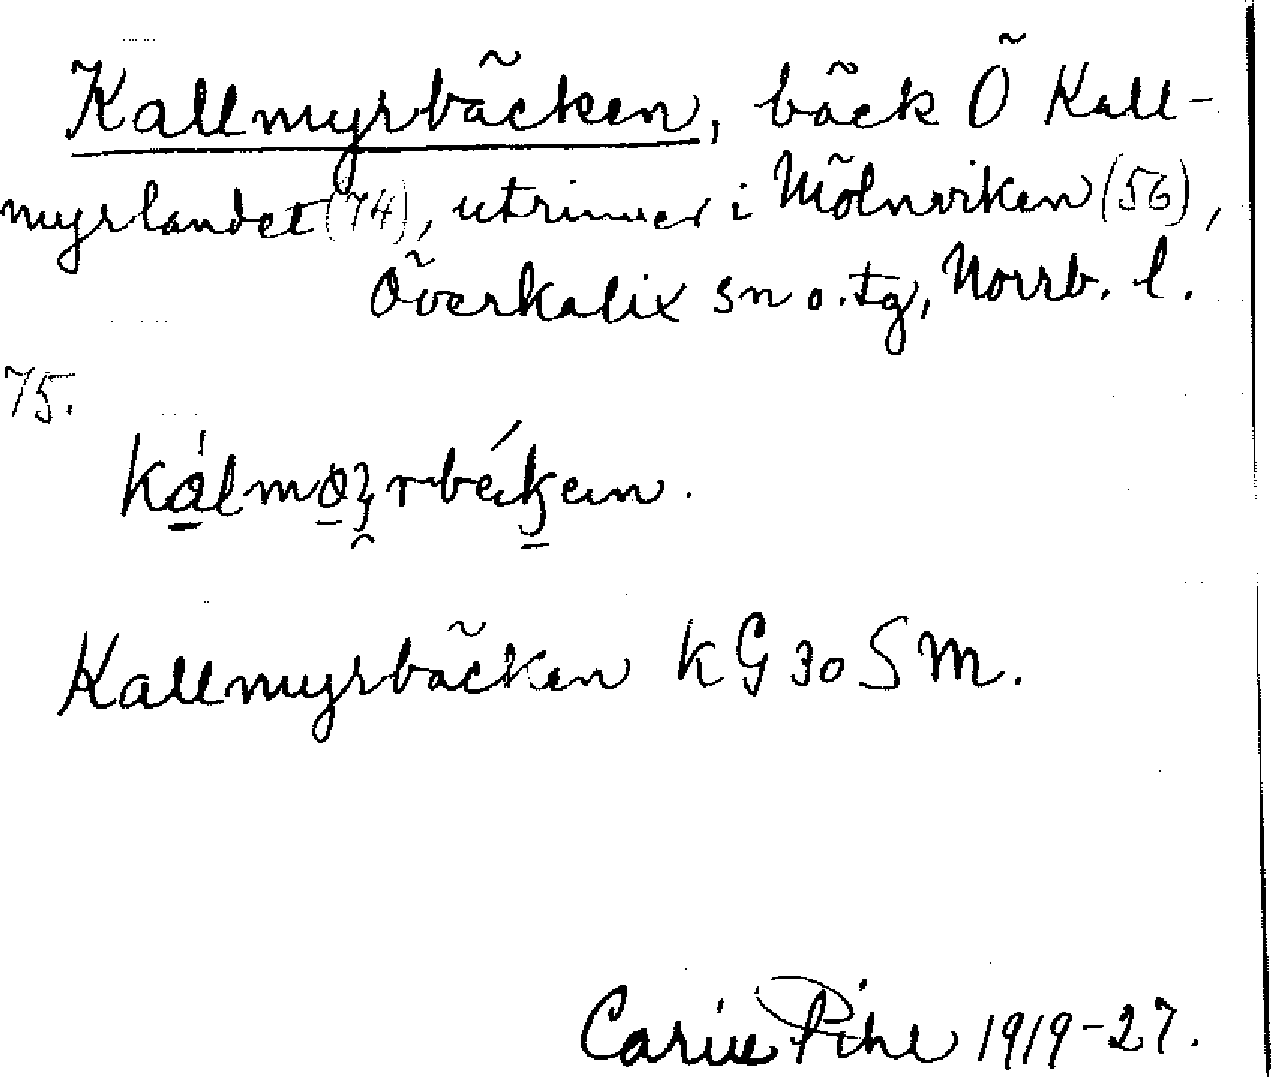 Kallmyrbäcken, bäck Ö Kall-
myrlandet (74), utrinner i Mölnviken (56),
Överkalix sn o. tg, Norrb. l.
75.
Kallmyrbäcken KG 30 SM.
Carin Pihl 1919-27.